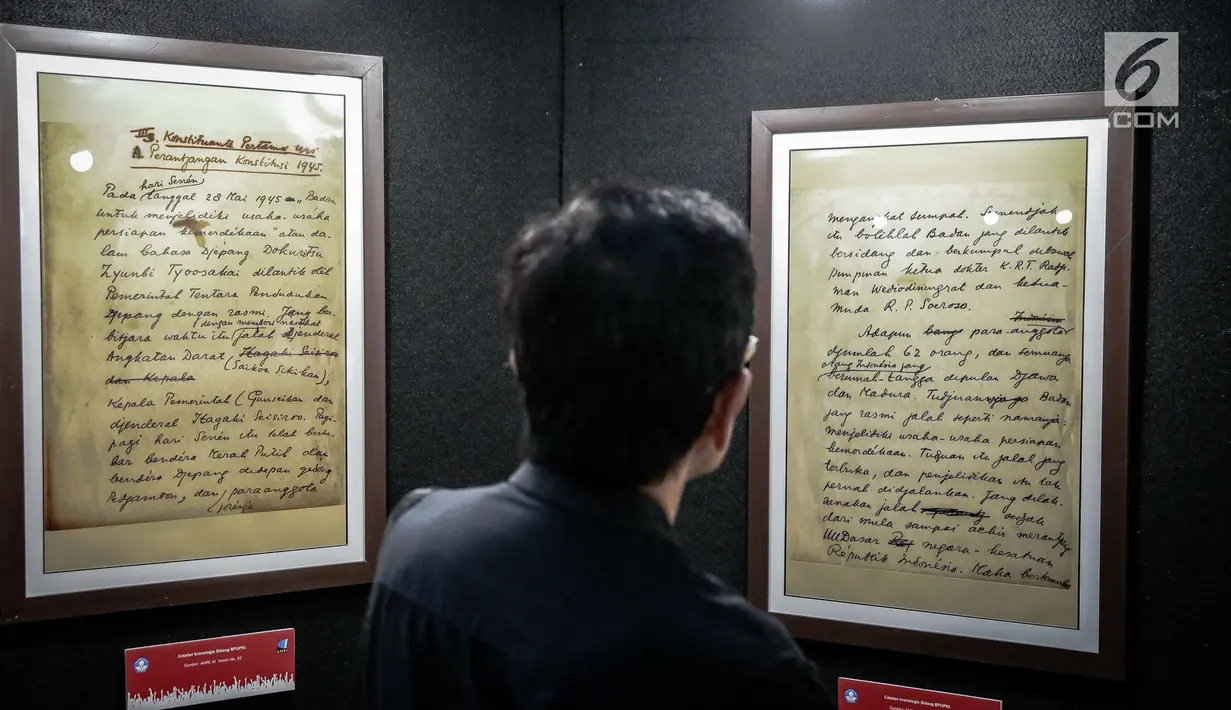 III B. Konstituante Pertama uri
A. Perantjangan Konstitusi 1945.
hari Senén
Pada tanggal 28 Mai 1945 „Badan
untuk menjelidiki usaha-usaha
persiapan kemerdékaan" atau da-
lam bahasa Djépang Dokuritsu
Zyunbi Tyoosakai dilantik oléh
Pemerintah Tentara Pendudukan
Djepang dengan rasmi. Jang ber-
dengan memberi nasehat
bitjara waktu itu jalah djenderal
Angkatan Darat, Itagaki Seisiroo
(Saikoo Sikikan),
dan Kepala
Kepala Pemerintah (Gunseikan dan
djenderal Itagaki Seisiroo. Pagi-
pagi hari Senén itu telah berki-
bar bendéra Mérah Putih dan
bendéra Djepang didepan gedong
Pedjambon, dan para anggota
Catatan kronologis Sidang BPUPKI.
Sumber: ANRI, M. Yamin No. 83
ANRI
mengangkat sumpah. Semendjak
itu bolihlah Badan jang dilantik
bersidang dan berkumpul dibawah
pimpinan ketua dokter K.R.T. Radji-
man Wediodiningrat dan ketua-
muda R. P. Soeroso.
Adapun para anggota
djumlah 62 orang, dan semuanja
orang Indonésia jang
berumah-tangga dipulau Djawa
dan Madura. Tudjuan Badan
jang rasmi jalah seperti namanja:
menjelidiki usaha-usaha persiapan
kemerdékaan. Tudjuan itu jalah jang
terbuka, dan penjelidikan itu tak
pernah didjalankan. Jang dilak-
sanakan jalah sedjak
dari mula sampai achir merantjang
UUDasar negara-kesatuan
Républik Indonésia. Maka
Catatan kronologis Sidang BPUPKI.
6
.COM